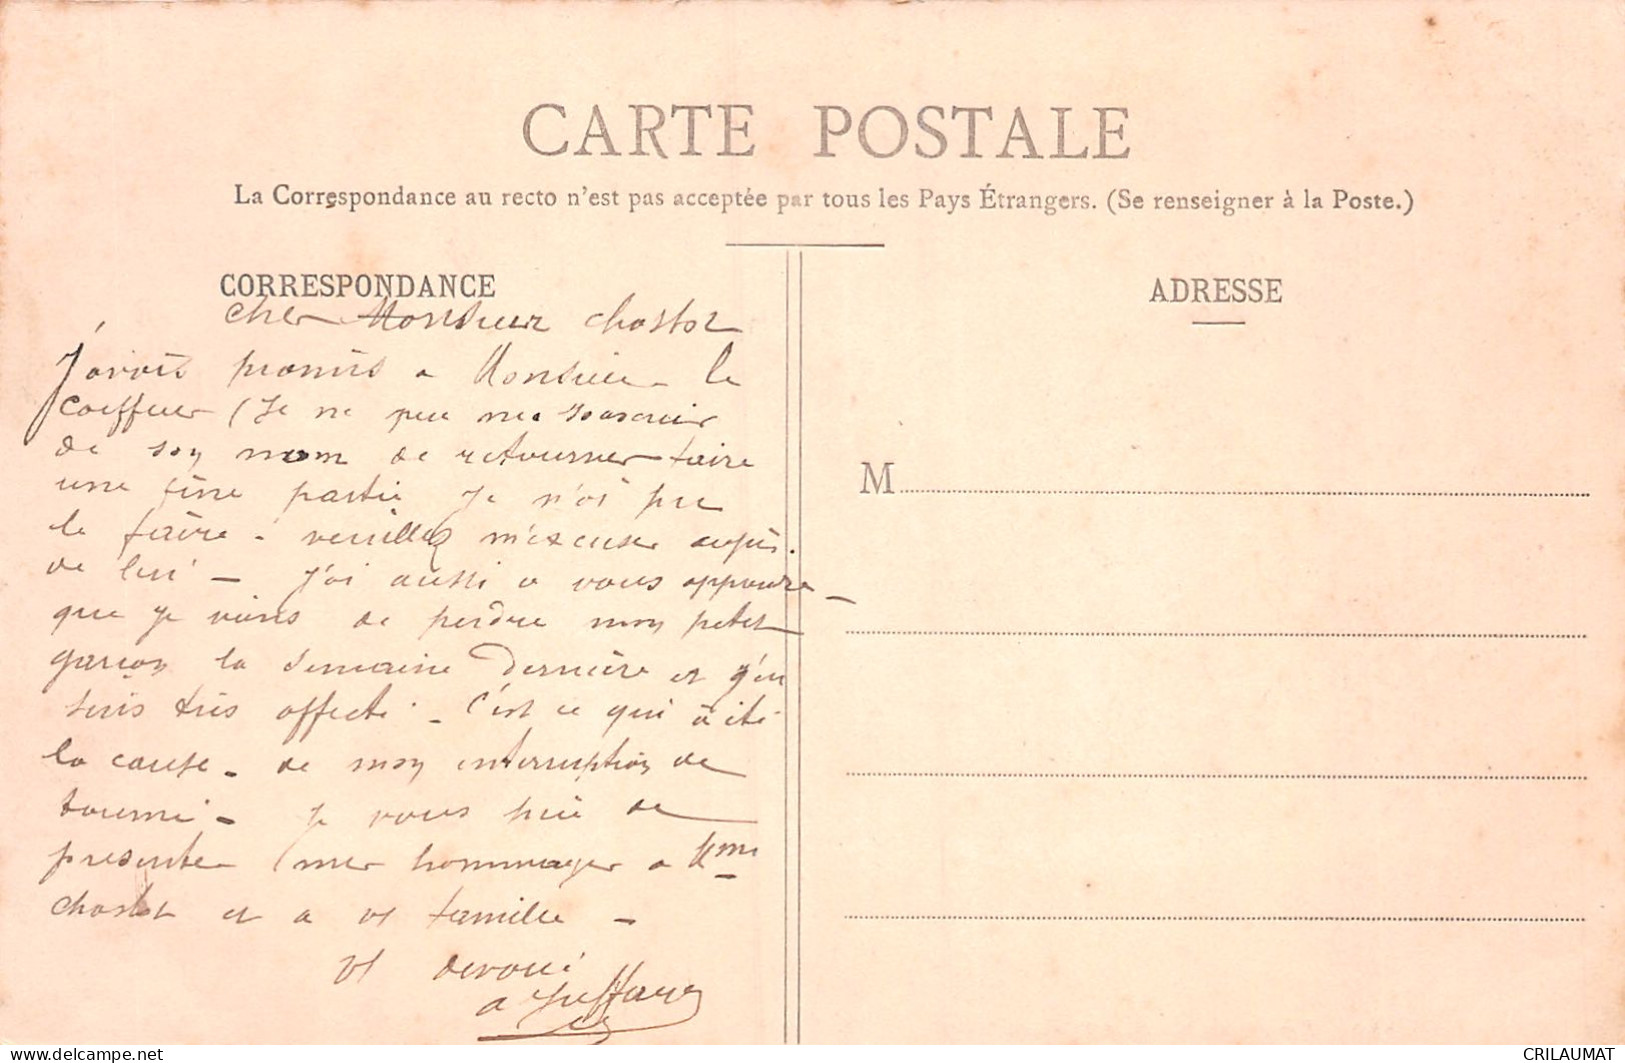 CARTE POSTALE
La Correspondance au recto n'est pas acceptée par tous les Pays Étrangers. (Se renseigner à la Poste.)
CORRESPONDANCE
cher Monsieur Chastot
J'avais promis a Monsieur le
coiffeur (Je ne peu me
de son nom de retourner faire
une fine partie je n'ai pu
le faire - veuillez m'excuser auprès
de lui - j'ai aussi a vous apprendre
que je viens de perdre mon petit
garçon la semaine Dernière et j'en
suis très affecté - c'est ce qui à été
la cause - de mon interruption de
tourné - Je vous prie de
presenter mes hommages a Mme
Chastot et a vt famille -
vt devoué
a
ADRESSE
M
www.delcampe.net
CRILAUMAT